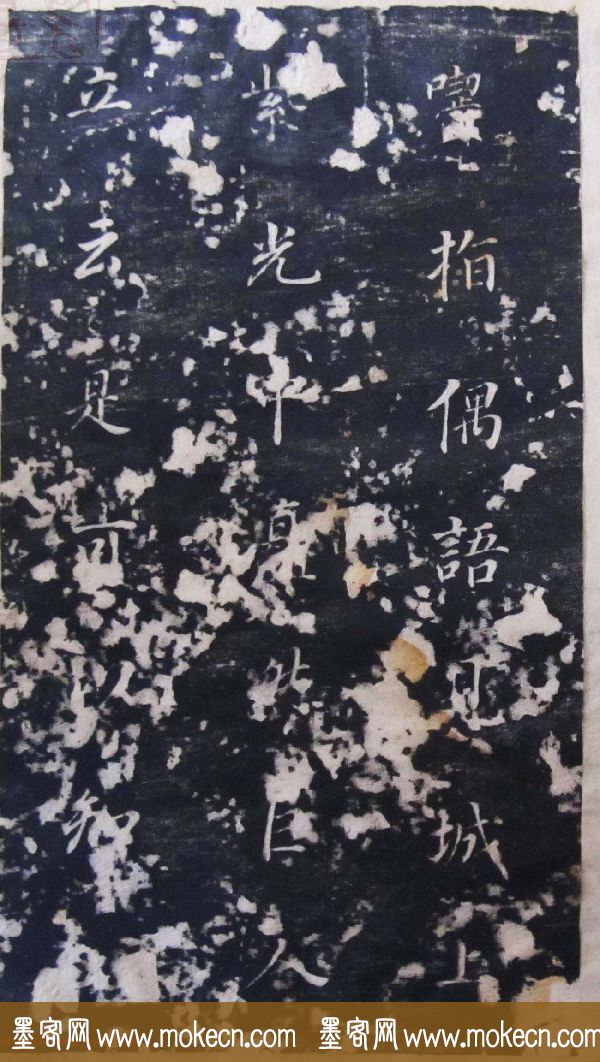 指偶語見城上
紫光中然巨人
立去是可以知
墨客网 www.mokecn.com 墨客网 www.mokecn.com